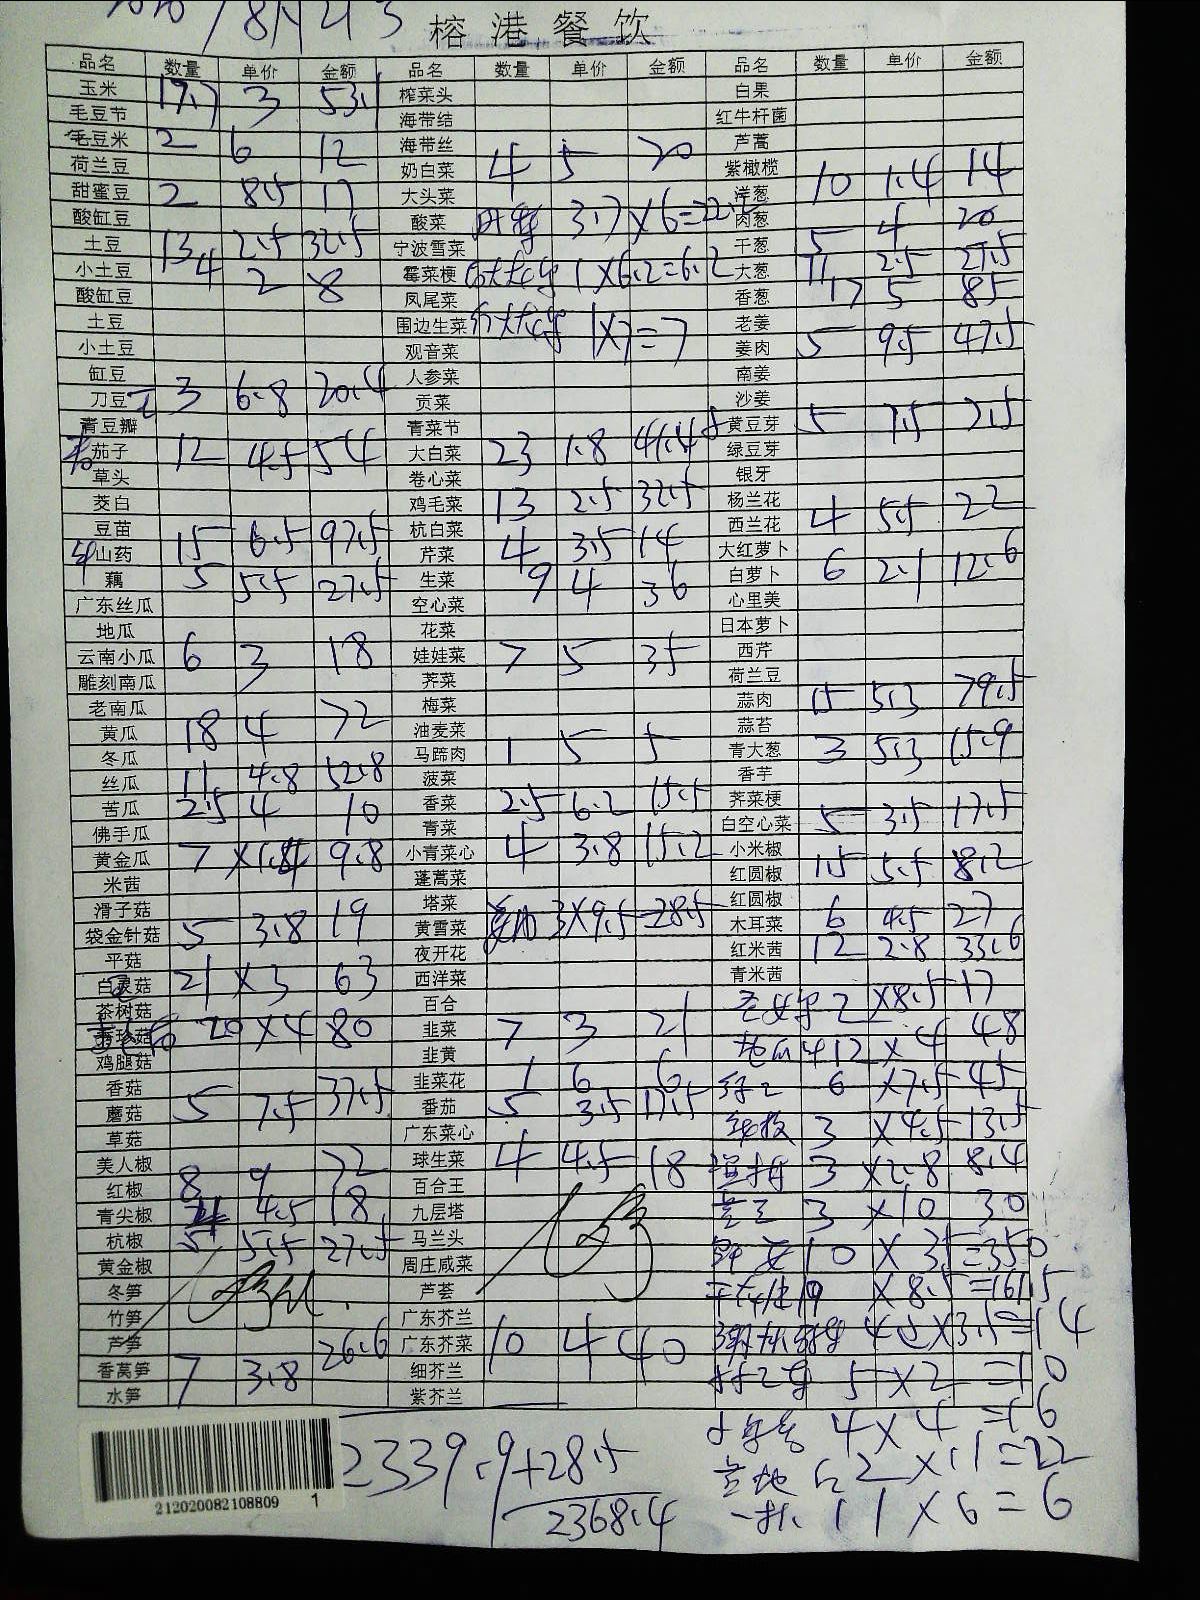 2020/8月21号
榕港餐饮
品名 数量 单价 金额 品名 数量 单价 金额 品名 数量 单价 金额
玉米 17.7 3 53.1 榨菜头 白果
毛豆节 海带结 红牛杆菌
毛豆米 2 6 12 海带丝 芦蒿
荷兰豆 奶白菜 4 5 20 紫橄榄
甜蜜豆 2 8.5 17 大头菜 洋葱 10 1.4 14
酸缸豆 酸菜 3.7×6=22.5 肉葱
土豆 13 2.5 32.5 宁波雪菜 干葱 5 4 20
小土豆 4 2 8 霉菜梗 1×6.2=6.2 大葱 11 2.5 27.5
酸缸豆 凤尾菜 香葱 17 5 85
土豆 围边生菜 1×7=7 老姜
小土豆 观音菜 姜肉 5 9.5 47.5
缸豆 人参菜 南姜
刀豆 3 6.8 20.4 贡菜 沙姜
青豆瓣 青菜节 黄豆芽 5 1.5 7.5
茄子 12 4.5 54 大白菜 23 1.8 41.4 绿豆芽
草头 卷心菜 银牙
茭白 鸡毛菜 13 2.5 32.5 杨兰花
豆苗 15 6.5 97.5 杭白菜 西兰花 4 5.5 22
山药 芹菜 4 3.5 14 大红萝卜
藕 5 5.5 27.5 生菜 9 4 36 白萝卜 6 2.1 12.6
广东丝瓜 空心菜 心里美
地瓜 花菜 日本萝卜
云南小瓜 6 3 18 娃娃菜 7 5 35 西芹
雕刻南瓜 荠菜 荷兰豆
老南瓜 梅菜 蒜肉 15 5.3 79.5
黄瓜 18 4 72 油麦菜 蒜苔
冬瓜 马蹄肉 1 5 5 青大葱 3 5.3 15.9
丝瓜 11 4.8 52.8 菠菜 香芋
苦瓜 2.5 4 10 香菜 2.5 6.2 15.5 荠菜梗
佛手瓜 青菜 白空心菜 5 3.5 17.5
黄金瓜 7 ×1.4 9.8 小青菜心 4 3.8 15.2 小米椒
米茜 蓬蒿菜 红圆椒 1.5 5.5 8.2
滑子菇 塔菜 红圆椒
袋金针菇 5 3.8 19 黄雪菜 3×9.5=28.5 木耳菜 6 4.5 27
平菇 夜开花 红米茜 12 2.8 33.6
白灵菇 21 ×3 63 西洋菜 青米茜
茶树菇 百合 圣女果 2 ×8.5 17
秀珍菇 20 ×4 80 韭菜 7 3 21 12 × 4 48
鸡腿菇 韭黄
香菇 韭菜花 1 6 6 6 ×7.5 45
蘑菇 5 7.5 37.5 番茄 5 3.5 17.5
草菇 广东菜心 3 ×4.5 13.5
美人椒 球生菜 4 4.5 18 3 ×2.8 8.4
红椒 8 9 72 百合王
青尖椒 4 4.5 18 九层塔 3 ×10 30
杭椒 5 5.5 27.5 马兰头
黄金椒 周庄咸菜 10 × 35=350
冬笋 芦荟 19 ×8.5=161.5
竹笋 广东芥兰
芦笋 广东芥菜 10 4 40 4 ×3.5=14
香莴笋 7 3.8 26.6 细芥兰 5×2=10
水笋 紫芥兰
4×4=16
2×11=22
1×6=6
2339.9+28.5
2368.4
212020082108809 1